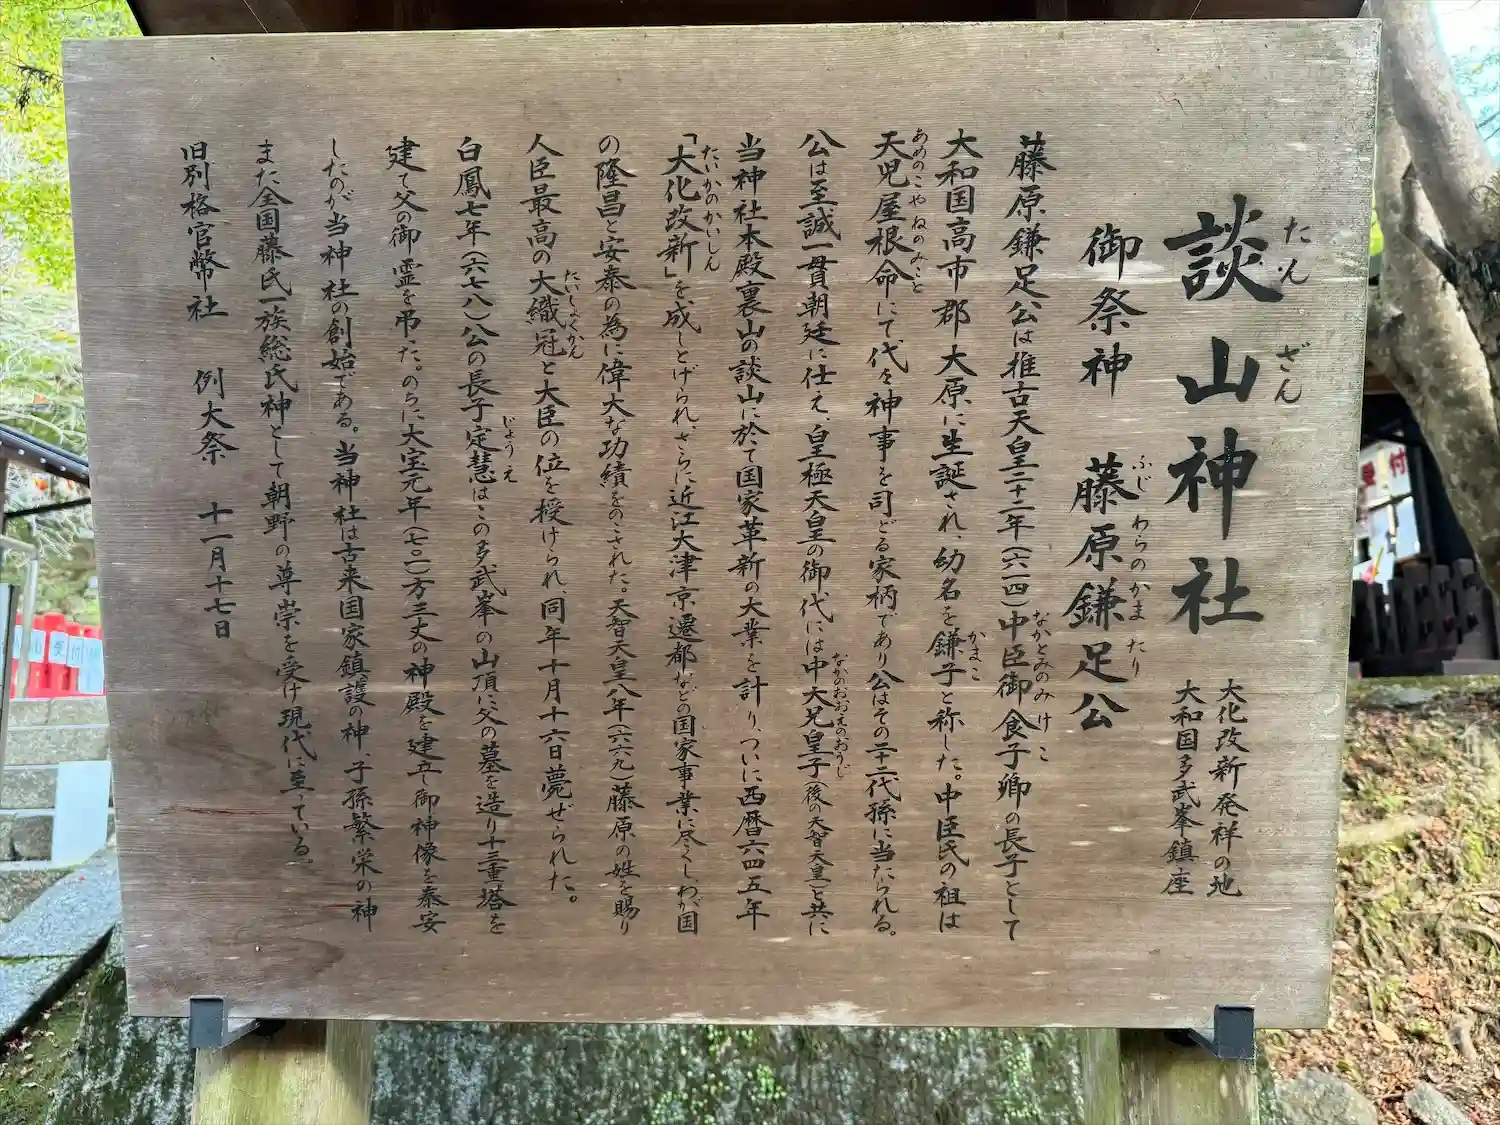 談山神社
たん ざん
大化改新発祥の地
大和国多武峯鎮座
御祭神 藤原鎌足公
ふじ わらのかま たり
藤原鎌足公は推古天皇二十二年(六一四)中臣御食子卿の長子として
なかとみのみ け こ
大和国高市郡大原に生誕され、幼名を鎌子と称した。中臣氏の祖は
かまこ
天児屋根命にて代々神事を司どる家柄であり公はその二十二代孫に当たられる。
あめのこや ねのみこと
公は至誠一貫朝廷に仕え、皇極天皇の御代には中大兄皇子(後の天智天皇)と共に
なかのおおえのおうじ
当神社本殿裏山の談山に於て国家革新の大業を計り、ついに西暦六四五年
「大化改新」を成しとげられ、さらに近江大津京遷都などの国家事業に尽くし、わが国
たいかのかいしん
の隆昌と安泰の為に偉大な功績をのこされた。天智天皇八年(六六九)藤原の姓を賜り
人臣最高の大織冠と大臣の位を授けられ、同年十月十六日薨ぜられた。
たいしょくかん
白鳳七年(六七八)公の長子定慧はこの多武峯の山頂に父の墓を造り十三重塔を
じょうえ
建て父の御霊を弔った。のちに大宝元年(七〇一)方三丈の神殿を建立し御神像を奉安
したのが当神社の創始である。当神社は古来国家鎮護の神、子孫繁栄の神
また全国藤氏一族総氏神として朝野の尊崇を受け現代に至っている。
旧別格官幣社 例大祭 十一月十七日
受付
受付